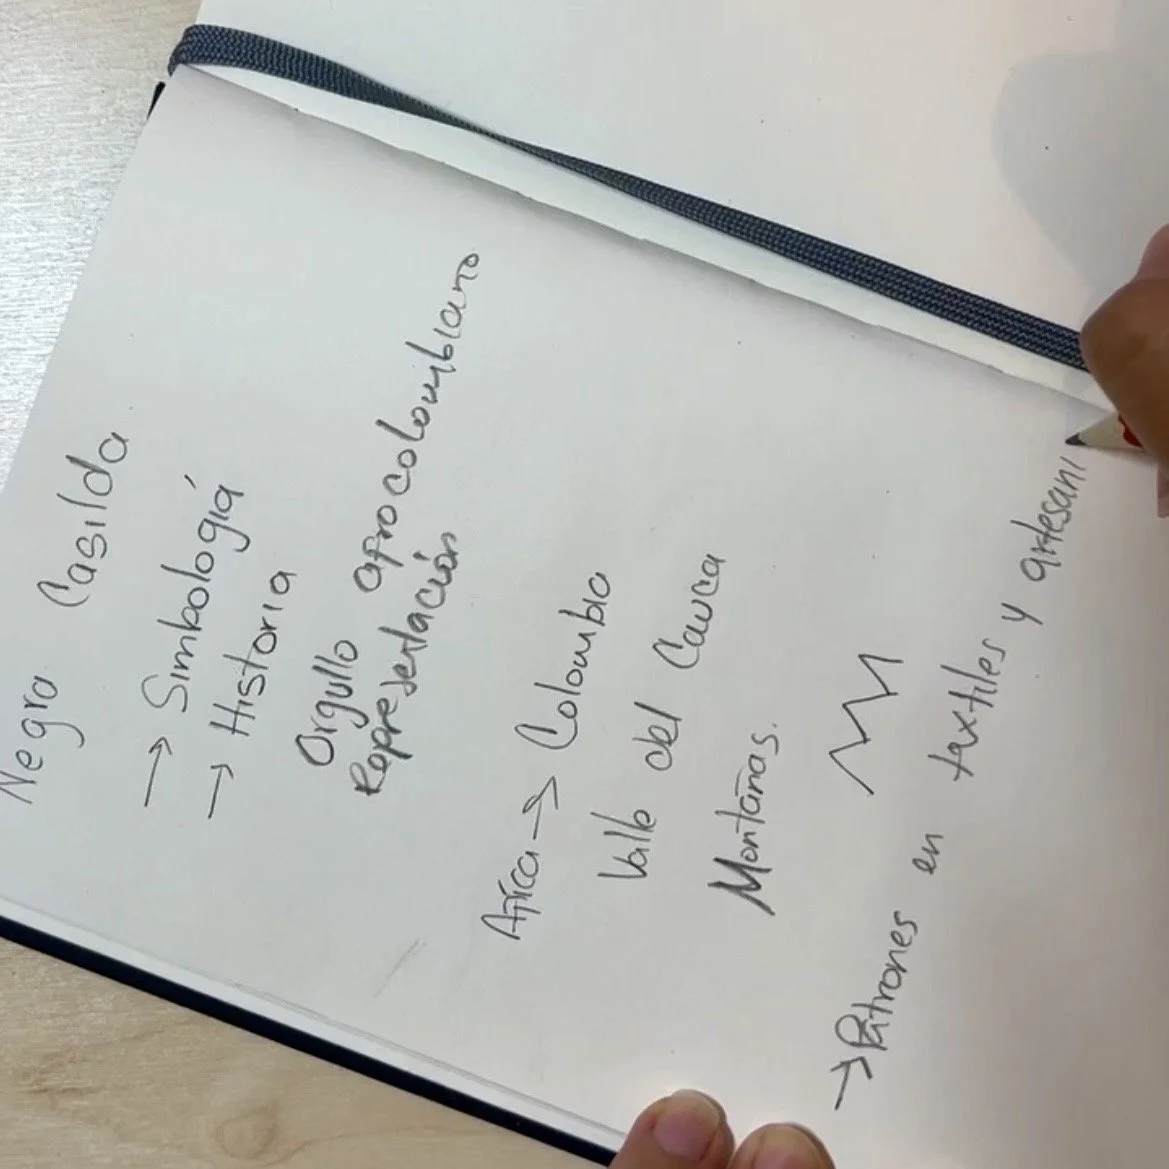 Negra Casilda
→ Simbología
→ Historia
Orgullo afrocolombiano
Representación
África → Colombia
Valle del Cauca
Montañas.
→ Patrones en textiles y artesani